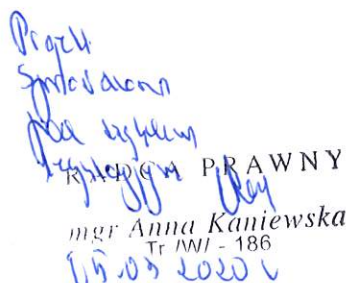 Projekt
Sprawdzono
pod względem
RADCA PRAWNY
mgr Anna Kaniewska
Tr /W/ - 186
2020